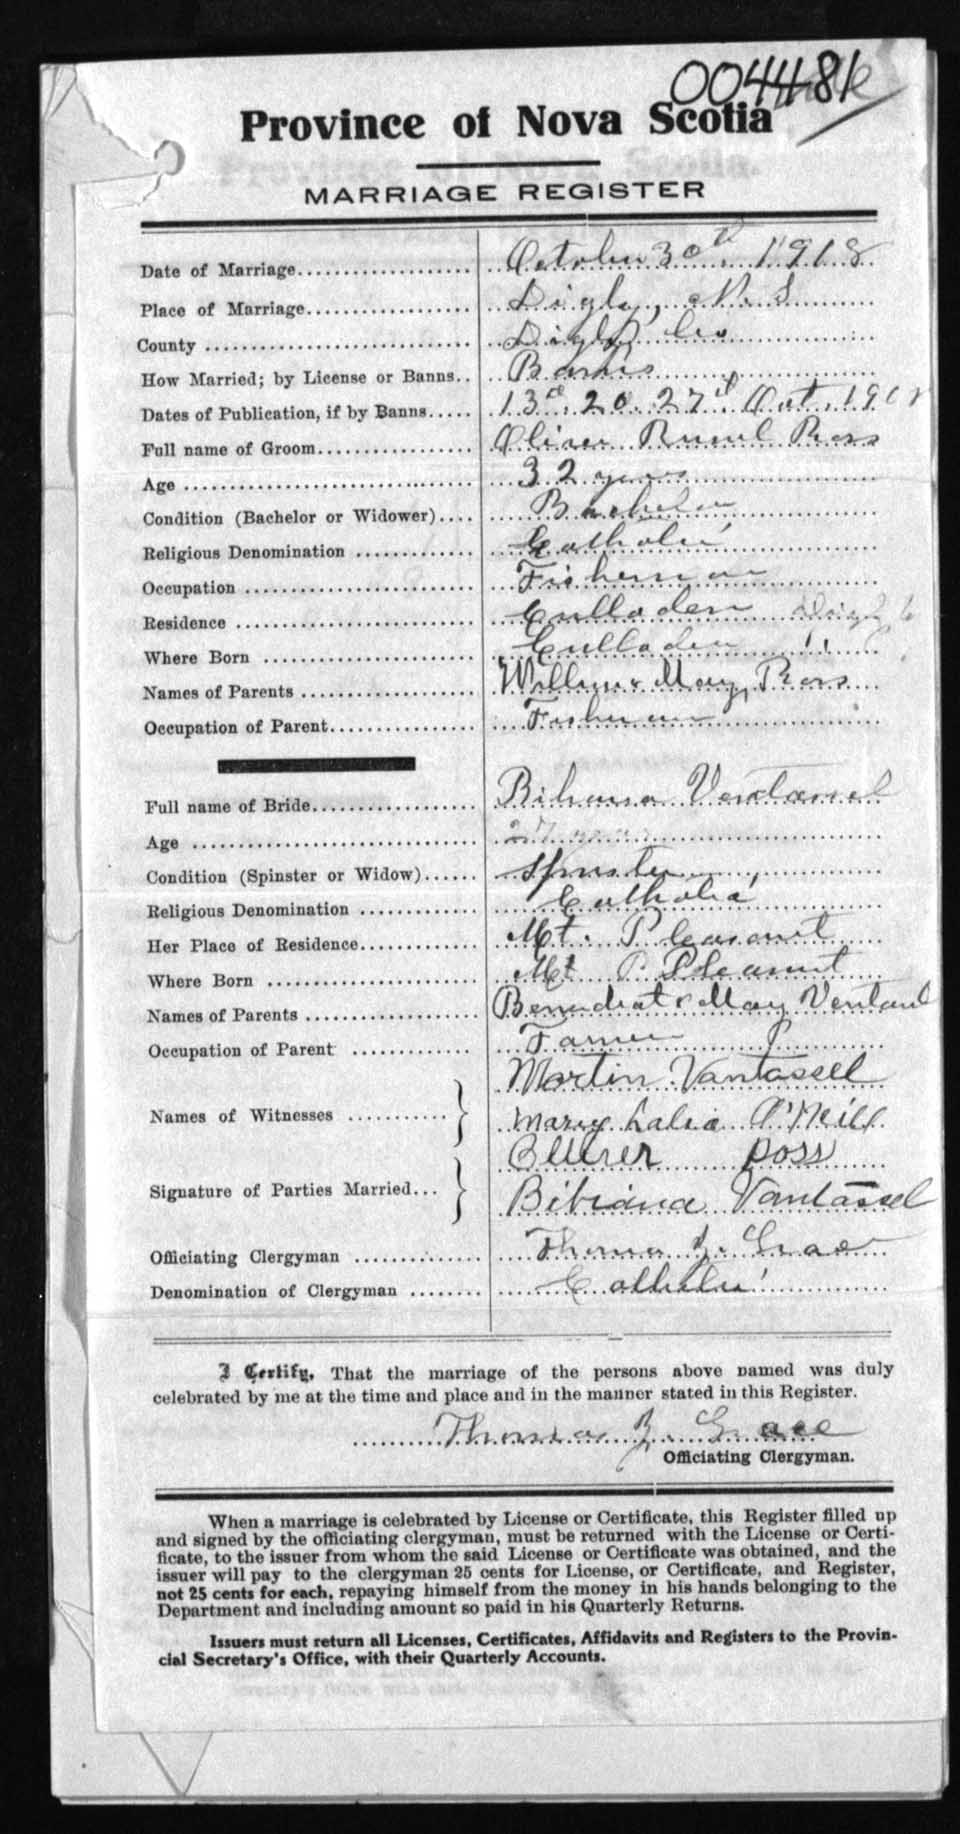 004481
Province of Nova Scotia
MARRIAGE REGISTER
Date of Marriage................... October 30th, 1918
Place of Marriage.................. Digby, N. S
County .............................. Digby Co
How Married; by License or Banns.. Banns
Dates of Publication, if by Banns..... 13th, 20, 27th Oct. 1918
Full name of Groom.................. Oliver Russel Ross
Age ................................. 32 years
Condition (Bachelor or Widower).... Bachelor
Religious Denomination ............. Catholic
Occupation .......................... Fisherman
Residence ........................... Culloden Digby Co
Where Born ........................ Culloden " "
Names of Parents ................... William & Mary Ross
Occupation of Parent................ Fisherman
Full name of Bride................... Bibiana Vantassel
Age ................................ 27 years
Condition (Spinster or Widow)...... Spinster
Religious Denomination ............. Catholic
Her Place of Residence.............. Mt. Pleasant
Where Born ........................ Mt P. Pleasant
Names of Parents ................... Benedict & Mary Vantassel
Occupation of Parent .............. Farmer
Names of Witnesses ........... } Martin Vantassel
Mary O'Neill
Signature of Parties Married... } Ross
Bibiana Vantassel
Officiating Clergyman .............. Thomas J. Grace
Denomination of Clergyman ........ Catholic
I Certify, That the marriage of the persons above named was duly
celebrated by me at the time and place and in the manner stated in this Register.
Thomas J. Grace
Officiating Clergyman.
When a marriage is celebrated by License or Certificate, this Register filled up
and signed by the officiating clergyman, must be returned with the License or Certi-
ficate, to the issuer from whom the said License or Certificate was obtained, and the
issuer will pay to the clergyman 25 cents for License, or Certificate, and Register,
not 25 cents for each, repaying himself from the money in his hands belonging to the
Department and including amount so paid in his Quarterly Returns.
Issuers must return all Licenses, Certificates, Affidavits and Registers to the Provin-
cial Secretary's Office, with their Quarterly Accounts.